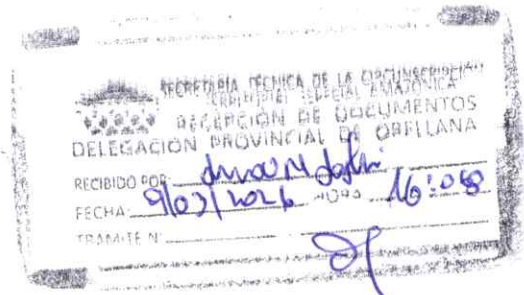 SECRETARÍA TÉCNICA DE LA CIRCUNSCRIPCIÓN
TERRITORIAL ESPECIAL AMAZÓNICA
RECEPCIÓN DE DOCUMENTOS
DELEGACIÓN PROVINCIAL DE ORELLANA
RECIBIDO POR:
FECHA: HORA 16:08
TRAMITE N°